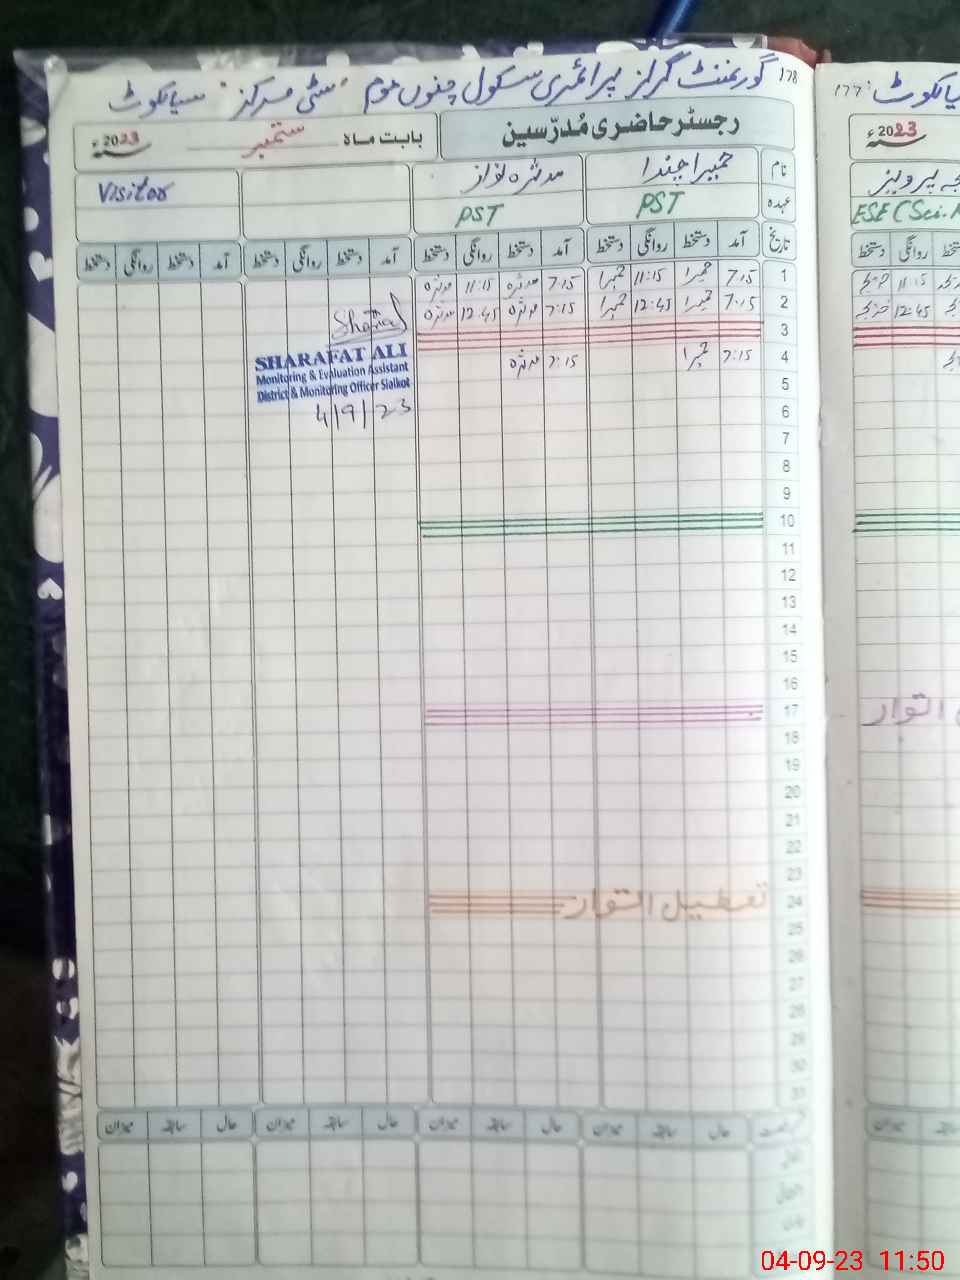 178
گورنمنٹ گرلز پرائمری سکول چنوں موم "سٹی مرکز" سیالکوٹ
رجسٹر حاضری مُدرّسین
بابت ماہ ستمبر 2023
نام حمیرا چندا مدثرہ نواز Visitor
عہدہ PST PST
تاریخ آمد دستخط روانگی دستخط آمد دستخط روانگی دستخط آمد دستخط روانگی دستخط آمد دستخط روانگی دستخط
1 7:15 حمیرا 11:15 حمیرا 7:15 مدثرہ 11:15 مدثرہ
2 7:15 حمیرا 12:45 حمیرا 7:15 مدثرہ 12:45 مدثرہ
3
4 7:15 حمیرا 7:15 مدثرہ
SHARAFAT ALI
Monitoring & Evaluation Assistant
District & Monitoring Officer Sialkot
4/9/23
5
6
7
8
9
10
11
12
13
14
15
16
17
18
19
20
21
22
23
24 تعطیل اتوار
25
26
27
28
29
30
31
حال سابقہ میزان حال سابقہ میزان حال سابقہ میزان حال سابقہ میزان
177
سیالکوٹ
2023
ESE (Sci.
روانگی دستخط
11:15
12:45
اتوار
میزان
04-09-23 11:50